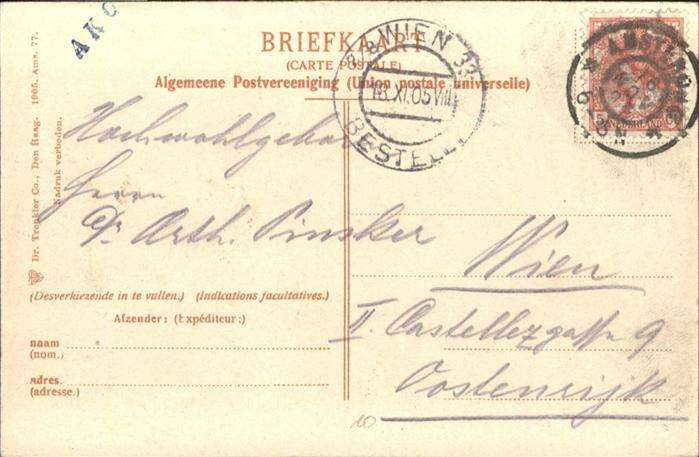 AKO
BRIEFKAART
(CARTE POSTALE)
Algemeene Postvereeniging (Union postale universelle)
WIEN
18.XI.05 VIII
BESTELL
AMSTERDAM
NEDERLAND
Dr. Trenkler Co., Den Haag. 1905. Ams. 77.
Nadruk verboden.
Hochwohlgebor
Herrn
Dr. Arth. Pinsker
Wien
II. Castellezgasse 9
Oostenrijk
(Desverkiezende in te vullen.) (Indications facultatives.)
Afzender: (Expéditeur:)
naam
(nom.)
adres.
(adresse.)
10